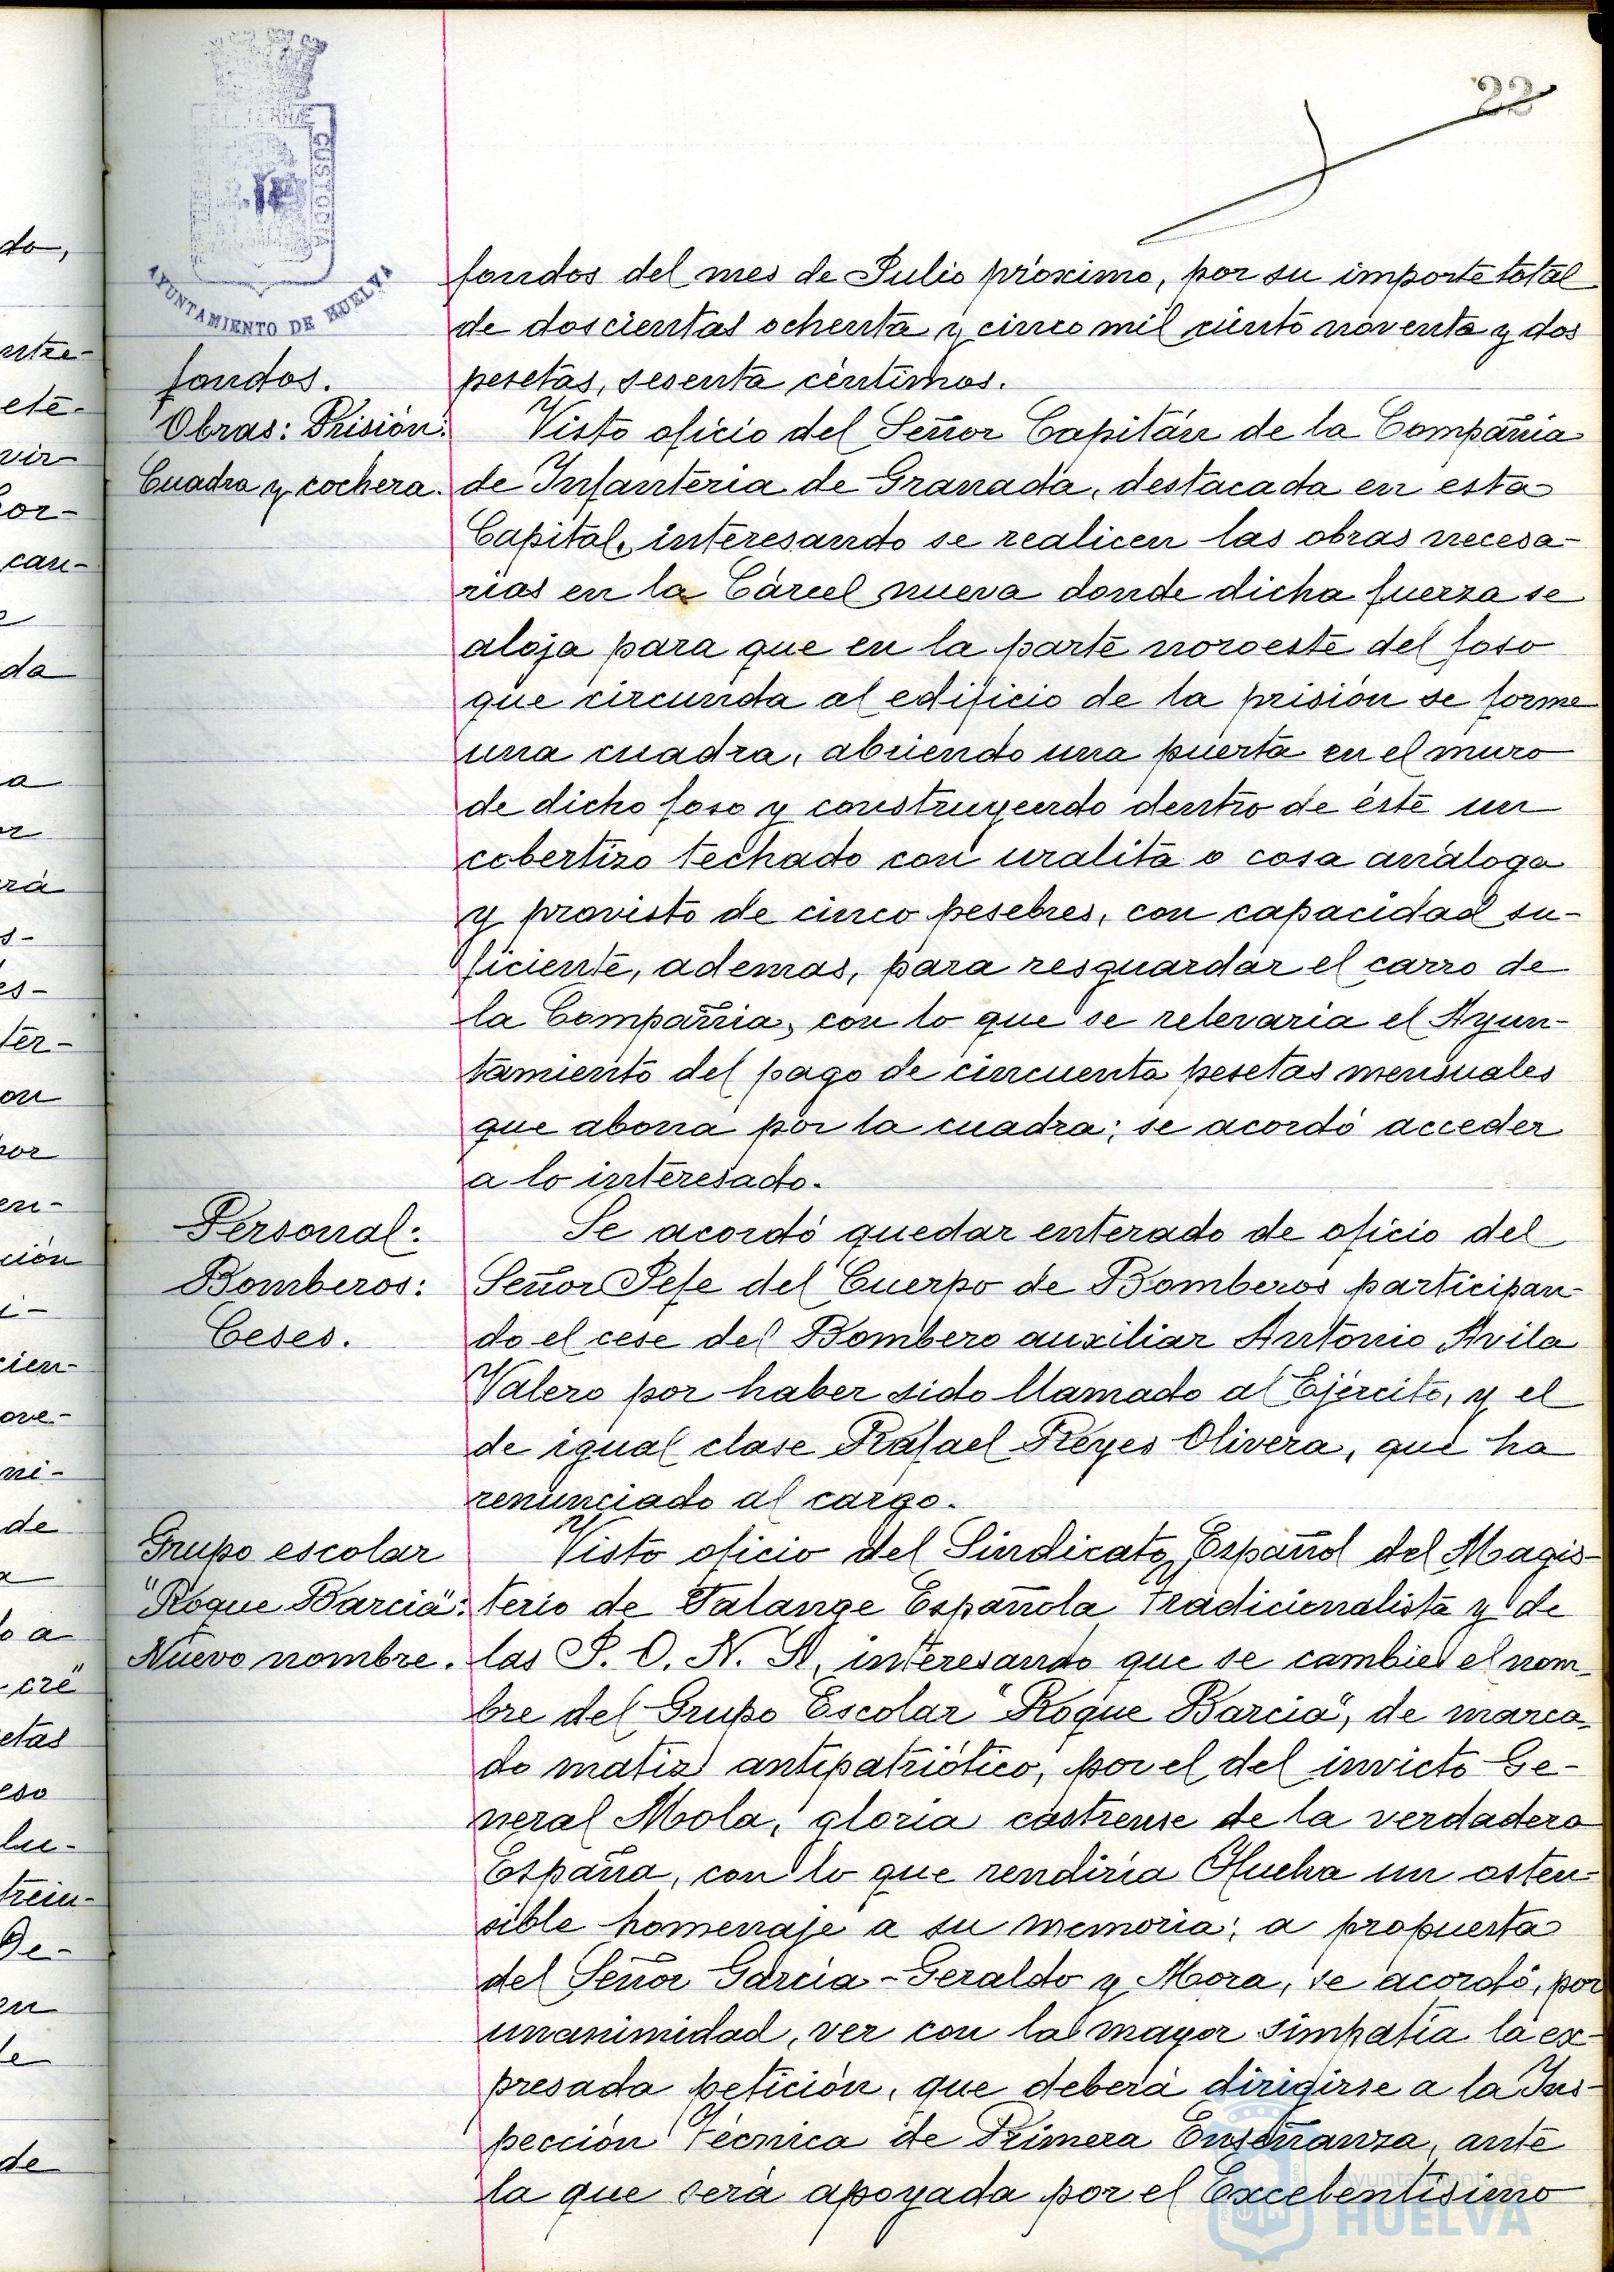 22
AYUNTAMIENTO DE HUELVA
fondos del mes de Julio próximo, por su importe total
de doscientas ochenta y cinco mil ciento noventa y dos
fondos.
pesetas, sesenta céntimos.
Obras: Prisión:
Visto oficio del Señor Capitán de la Compañia
Cuadra y cochera.
de Infanteria de Granada, destacada en esta
Capital, interesando se realicen las obras necesa-
rias en la Cárcel nueva donde dicha fuerza se
aloja para que en la parte noroeste del foso
que circunda al edificio de la prisión se forme
una cuadra, abriendo una puerta en el muro
de dicho foso y construyendo dentro de éste un
cobertizo techado con uralita o cosa análoga
y provisto de cinco pesebres, con capacidad su-
ficiente, ademas, para resguardar el carro de
la Compañia, con lo que se relevaria el Ayun-
tamiento del pago de cincuenta pesetas mensuales
que abona por la cuadra; se acordó acceder
a lo interesado.
Personal:
Bomberos:
Ceses.
Se acordó quedar enterado de oficio del
Señor Jefe del Cuerpo de Bomberos participan-
do el cese del Bombero auxiliar Antonio Avila
Valero por haber sido llamado al Ejército, y el
de igual clase Rafael Reyes Olivera, que ha
renunciado al cargo.
Grupo escolar
"Roque Barcia":
Nuevo nombre.
Visto oficio del Sindicato Español del Magis-
terio de Falange Española Tradicionalista y de
las J. O. N. S., interesando que se cambie el nom-
bre del Grupo Escolar "Roque Barcia", de marca-
do matiz antipatriótico, por el del invicto Ge-
neral Mola, gloria castrense de la verdadera
España, con lo que rendiria Huelva un osten-
sible homenaje a su memoria; a propuesta
del Señor Garcia-Geraldo y Mora, se acordó, por
unanimidad, ver con la mayor simpatia la ex-
presada petición, que deberá dirigirse a la Ins-
pección Técnica de Primera Enseñanza, ante
la que será apoyada por el Excelentisimo
Ayuntamiento de
HUELVA